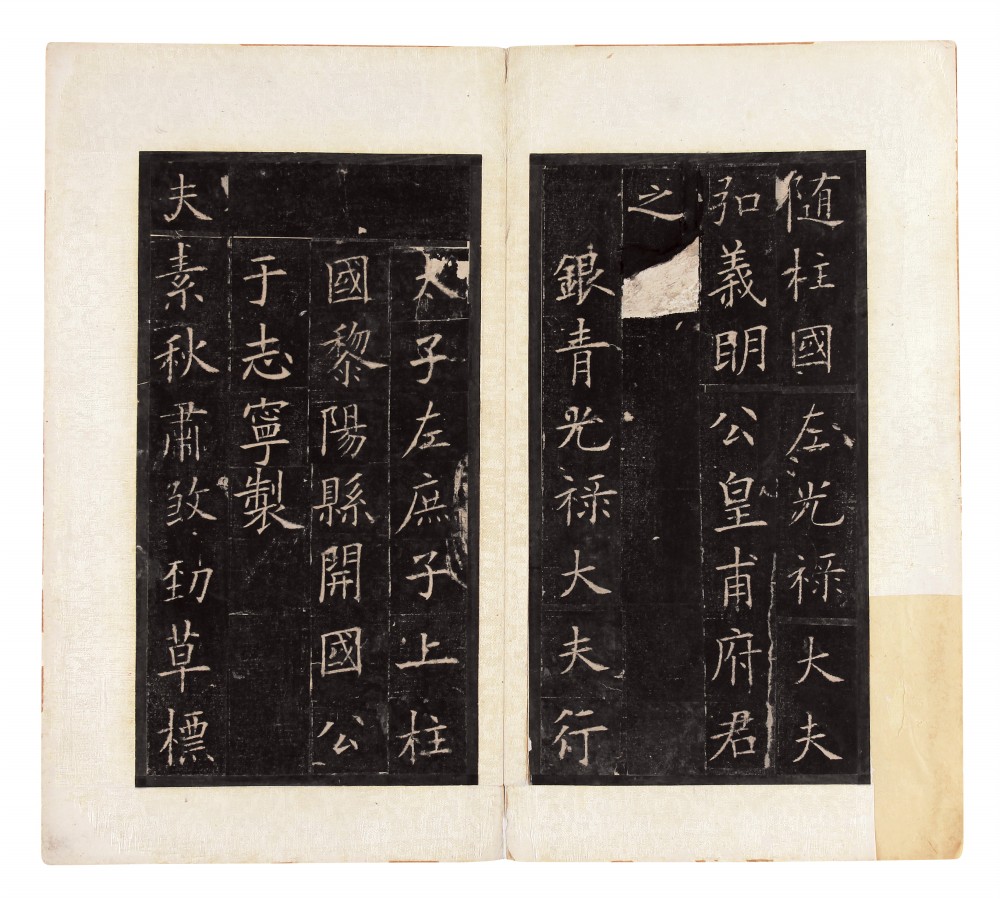 随柱國左光祿大夫
弘義明公皇甫府君
之
銀青光祿大夫行
太子左庶子上柱
國黎陽縣開國公
于志寧製
夫素秋肅煞勁草標